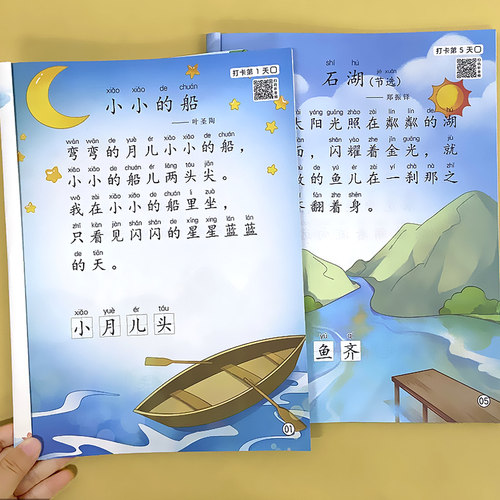 打卡第1天
xiǎo xiǎo de chuán
小小的船
——叶圣陶
wān wān de yuè ér xiǎo xiǎo de chuán
弯弯的月儿小小的船，
xiǎo xiǎo de chuán ér liǎng tóu jiān
小小的船儿两头尖。
wǒ zài xiǎo xiǎo de chuán lǐ zuò
我在小小的船里坐，
zhǐ kàn jiàn shǎn shǎn de xīng xīng lán lán
只看见闪闪的星星蓝蓝
de tiān
的天。
xiǎo yuè ér tóu
小月儿头
01
打卡第5天
shí hú jié xuǎn
石湖（节选）
——郑振铎
tài yáng guāng zhào zài lín lín de hú
太阳光照在粼粼的湖
面，闪耀着金光，就
的鱼儿在一刹那之
翻着身。
yú qí
鱼齐
05